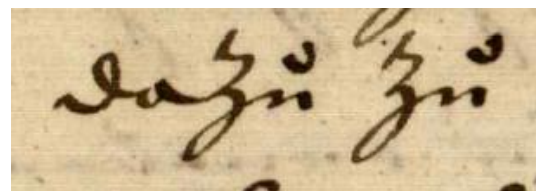 dazu zu